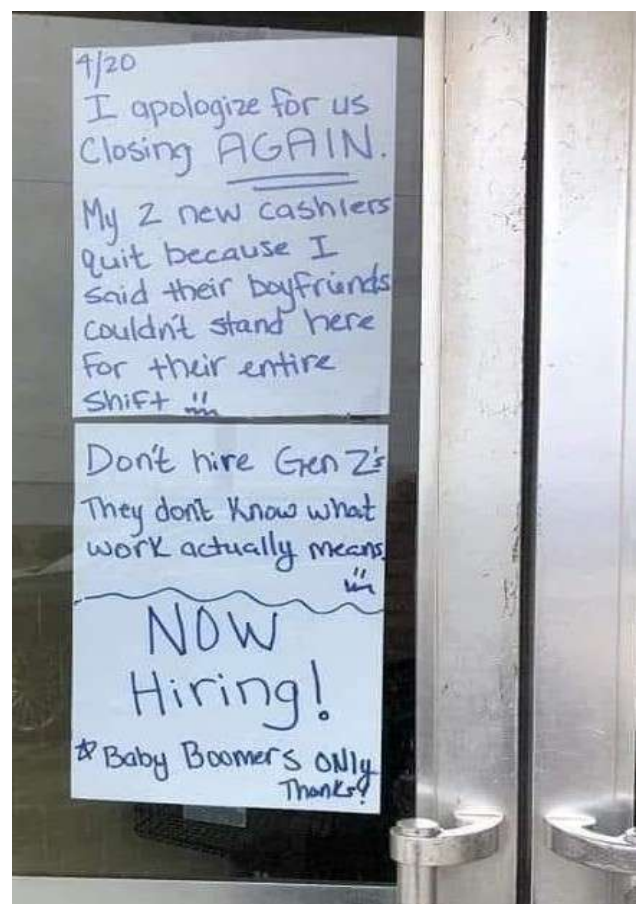 4/20
I apologize for us
Closing AGAIN.
My 2 new cashiers
quit because I
said their boyfriends
couldn't stand here
for their entire
shift
Don't hire Gen Z's
They don't know what
work actually means.
NOW
Hiring!
☆ Baby Boomers ONly
Thanks!